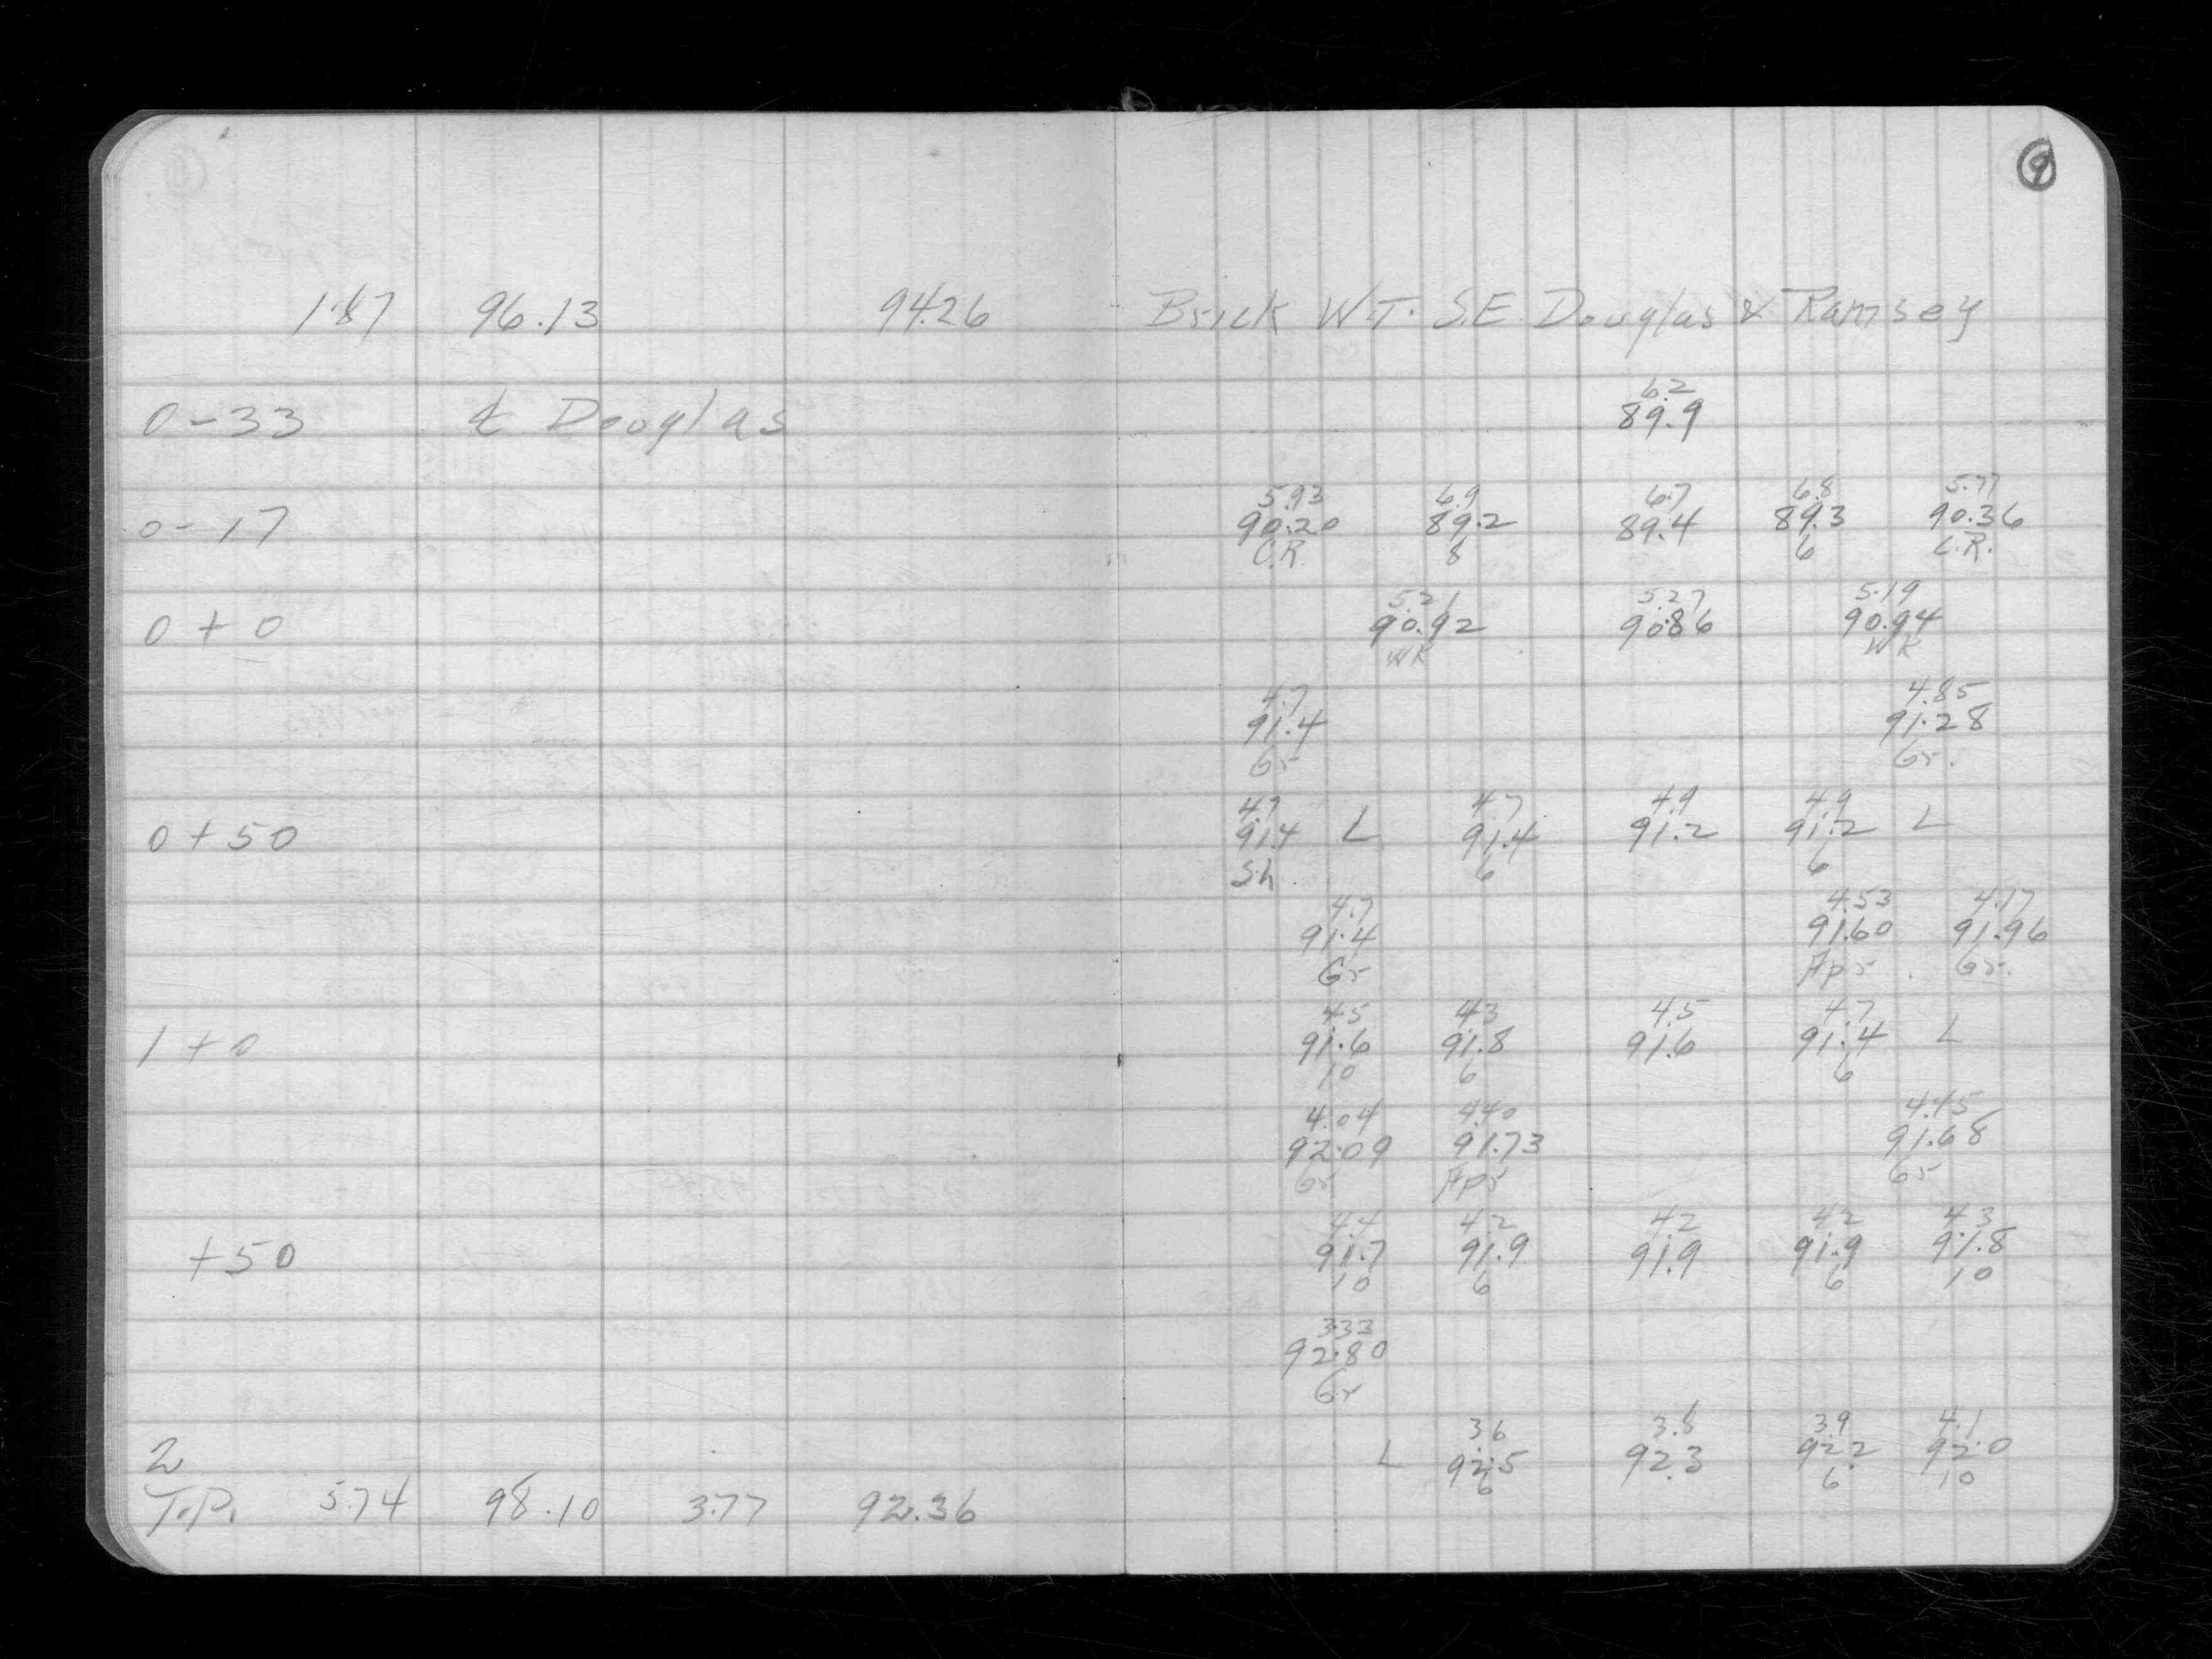 9
1.87 96.13 94.26 Brick W.T. S.E. Douglas & Ramsey
6.2
0-33 ℄ Douglas 89.9
5.93 6.9 6.7 6.8 5.77
0-17 90.20 89.2 89.4 89.3 90.36
C.R. 8 6 C.R.
5.21 5.27 5.19
0+0 90.92 90.86 90.94
WK WK
4.7 4.85
91.4 91.28
Gr Gr.
4.7 4.7 4.9 4.9
0+50 91.4 L 91.4 91.2 91.2 L
Sh. 6 6
4.7 4.53 4.17
91.4 91.60 91.96
Gr Apr. Gr.
4.5 4.3 4.5 4.7
1+0 91.6 91.8 91.6 91.4 L
10 6 6
4.04 4.40 4.45
92.09 91.73 91.68
Gr Apr Gr
4.4 4.2 4.2 4.2 4.3
+50 91.7 91.9 91.9 91.9 91.8
10 6 6 10
3.33
92.80
Gr
3.6 3.8 3.9 4.1
2 L 92.5 92.3 92.2 92.0
6 6 10
T.P. 5.74 98.10 3.77 92.36